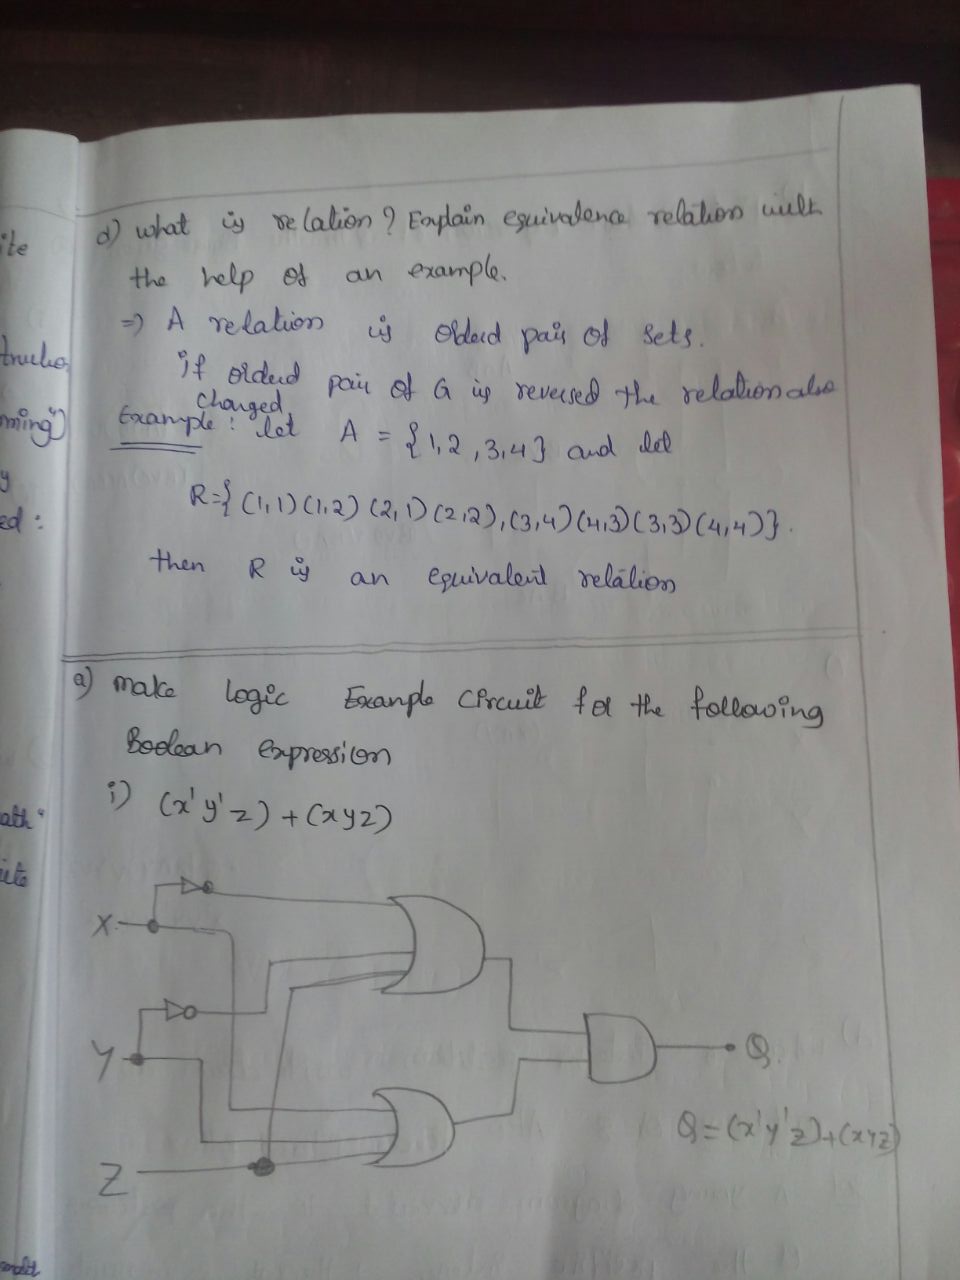 ite
d) what is relation? Explain equivalence relation with
the help of an example.
=> A relation is orderd pair of sets.
if orderd pair of G is reversed the relation also
changed
Example: let A = {1,2,3,4} and let
R={(1,1)(1,2)(2,1)(2,2),(3,4)(4,3)(3,3)(4,4)}.
then R is an equivalent relation
ming")
y
ed:
a) make Logic Example Circuit for the following
Boolean expression
i) (x'y'z)+(xyz)
X
Y
Z
Q
Q=(x'y'z)+(xyz)